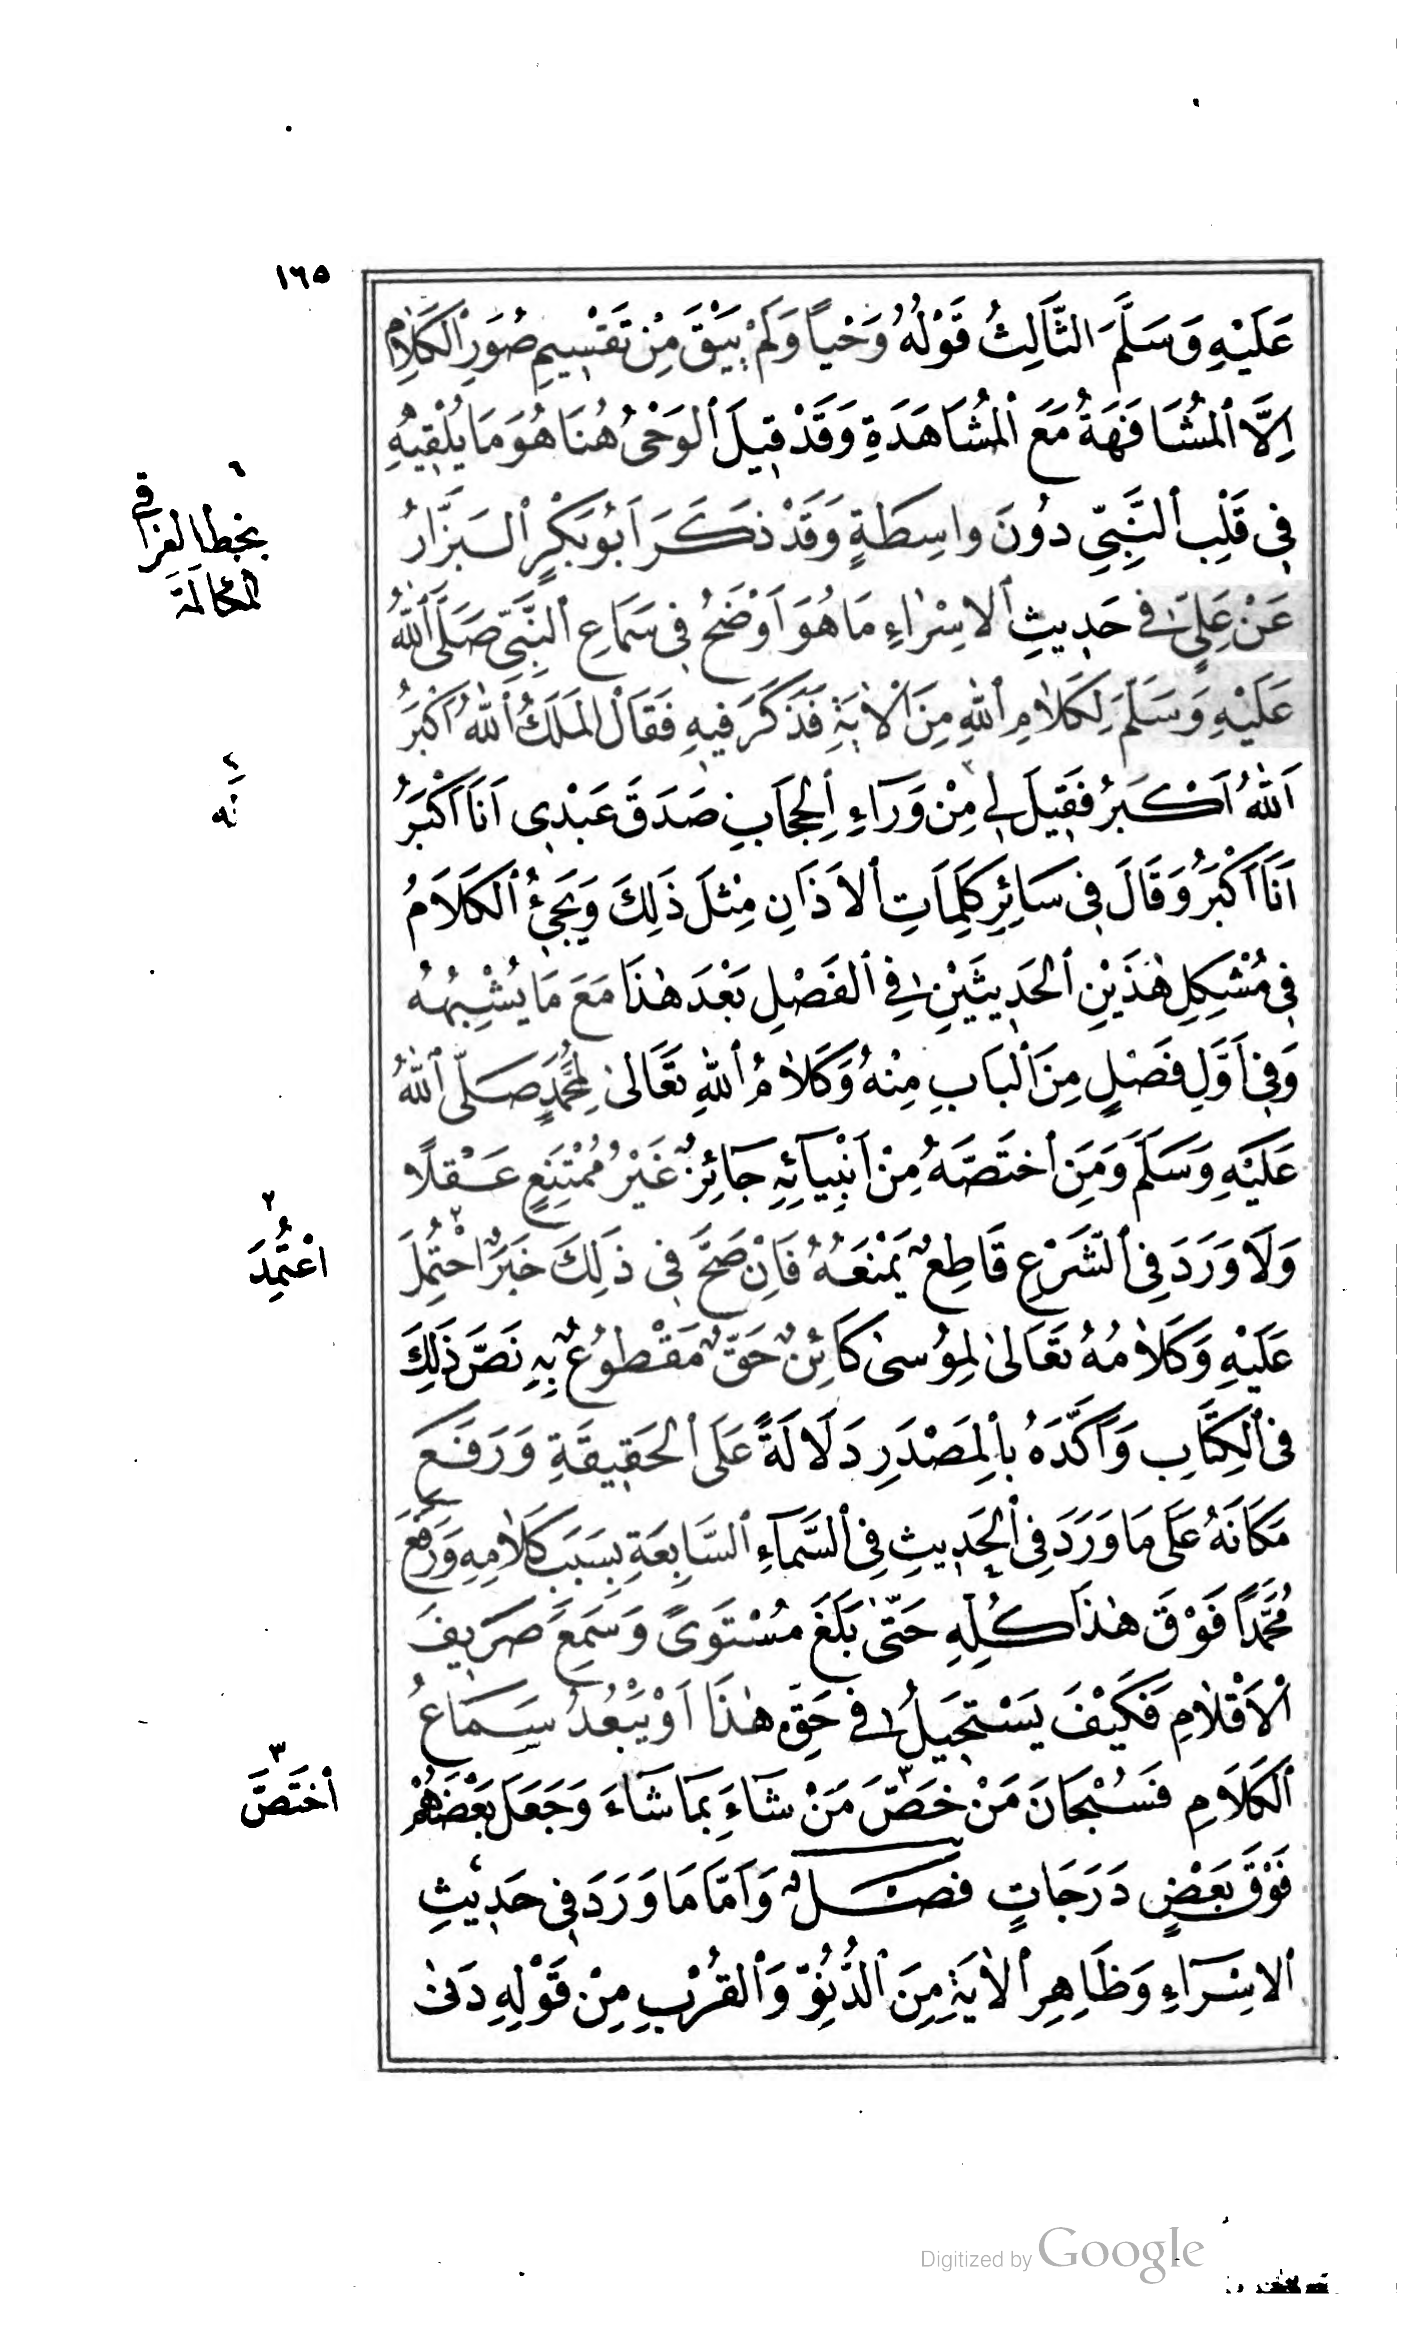 ١٦٥
عَلَيْهِ وَسَلَّمَ الثَّالِثُ قَوْلُهُ وَحْياً وَلَمْ يَبْقَ مِنْ تَقْسِيمِ صُوَرِ الْكَلَامِ
اِلَّا الْمُشَافَهَةُ مَعَ الْمُشَاهَدَةِ وَقَدْ قِيلَ الْوَحْىُ هُنَا هُوَ مَا يُلْقِيهِ
فِى قَلْبِ النَّبِىِّ دُونَ وَاسِطَةٍ وَقَدْ ذَكَرَ اَبُو بَكْرٍ الْبَزَّارُ
عَنْ عَلِىٍّ فِى حَدِيثِ الْاِسْرَاءِ مَا هُوَ اَوْضَحُ فِى سَمَاعِ النَّبِىِّ صَلَّى اللهُ
عَلَيْهِ وَسَلَّمَ لِكَلَامِ اللهِ مِنَ الْاٰيَةِ فَذَكَرَ فِيهِ فَقَالَ الْمَلَكُ اللهُ اَكْبَرُ
اَللهُ اَكْبَرُ فَقِيلَ لِى مِنْ وَرَاءِ الْحِجَابِ صَدَقَ عَبْدِى اَنَا اَكْبَرُ
اَنَا اَكْبَرُ وَقَالَ فِى سَائِرِ كَلِمَاتِ الْاَذَانِ مِثْلَ ذَلِكَ وَيَجِىْءُ الْكَلَامُ
فِى مُشْكِلِ هٰذَيْنِ الْحَدِيثَيْنِ فِى الْفَصْلِ بَعْدَ هٰذَا مَعَ مَا يُشْبِهُهُ
وَفِى اَوَّلِ فَصْلٍ مِنَ الْبَابِ مِنْهُ وَكَلَامُ اللهِ تَعَالىٰ لِمُحَمَّدٍ صَلَّى اللهُ
عَلَيْهِ وَسَلَّمَ وَمَنِ اخْتَصَّهُ مِنْ اَنْبِيَائِهِ جَائِزٌ غَيْرُ مُمْتَنِعٍ عَقْلًا
وَلَا وَرَدَ فِى الشَّرْعِ قَاطِعٌ يَمْنَعُهُ فَاِنْ صَحَّ فِى ذَلِكَ خَبَرٌ احْتُمِلَ
عَلَيْهِ وَكَلَامُهُ تَعَالىٰ لِمُوسىٰ كَائِنٌ حَقٌّ مَقْطُوعٌ بِهِ نَصَّ ذَلِكَ
فِى الْكِتَابِ وَاَكَّدَهُ بِالْمَصْدَرِ دَلَالَةً عَلَى الْحَقِيقَةِ وَرَفَعَ
مَكَانَهُ عَلَى مَا وَرَدَ فِى الْحَدِيثِ فِى السَّمَاءِ السَّابِعَةِ بِسَبَبِ كَلَامِهِ وَرَفَعَ
مُحَمَّداً فَوْقَ هٰذَا كُلِّهِ حَتّٰى بَلَغَ مُسْتَوىً وَسَمِعَ صَرِيفَ
الْاَقْلَامِ فَكَيْفَ يَسْتَحِيلُ فِى حَقِّ هٰذَا اَوْ يَبْعُدُ سَمَاعُ
الْكَلَامِ فَسُبْحَانَ مَنْ خَصَّ مَنْ شَاءَ بِمَا شَاءَ وَجَعَلَ بَعْضَهُمْ
فَوْقَ بَعْضٍ دَرَجَاتٍ فَصْلٌ وَاَمَّا مَا وَرَدَ فِى حَدِيثِ
الْاِسْرَاءِ وَظَاهِرِ الْاٰيَةِ مِنَ الدُّنُوِّ وَالْقُرْبِ مِنْ قَوْلِهِ دَنىٰ
٦
بخط العزافى
المكالمة
٢
اعْتُمِدَ
٣
اخْتَصَّ
Digitized by Google